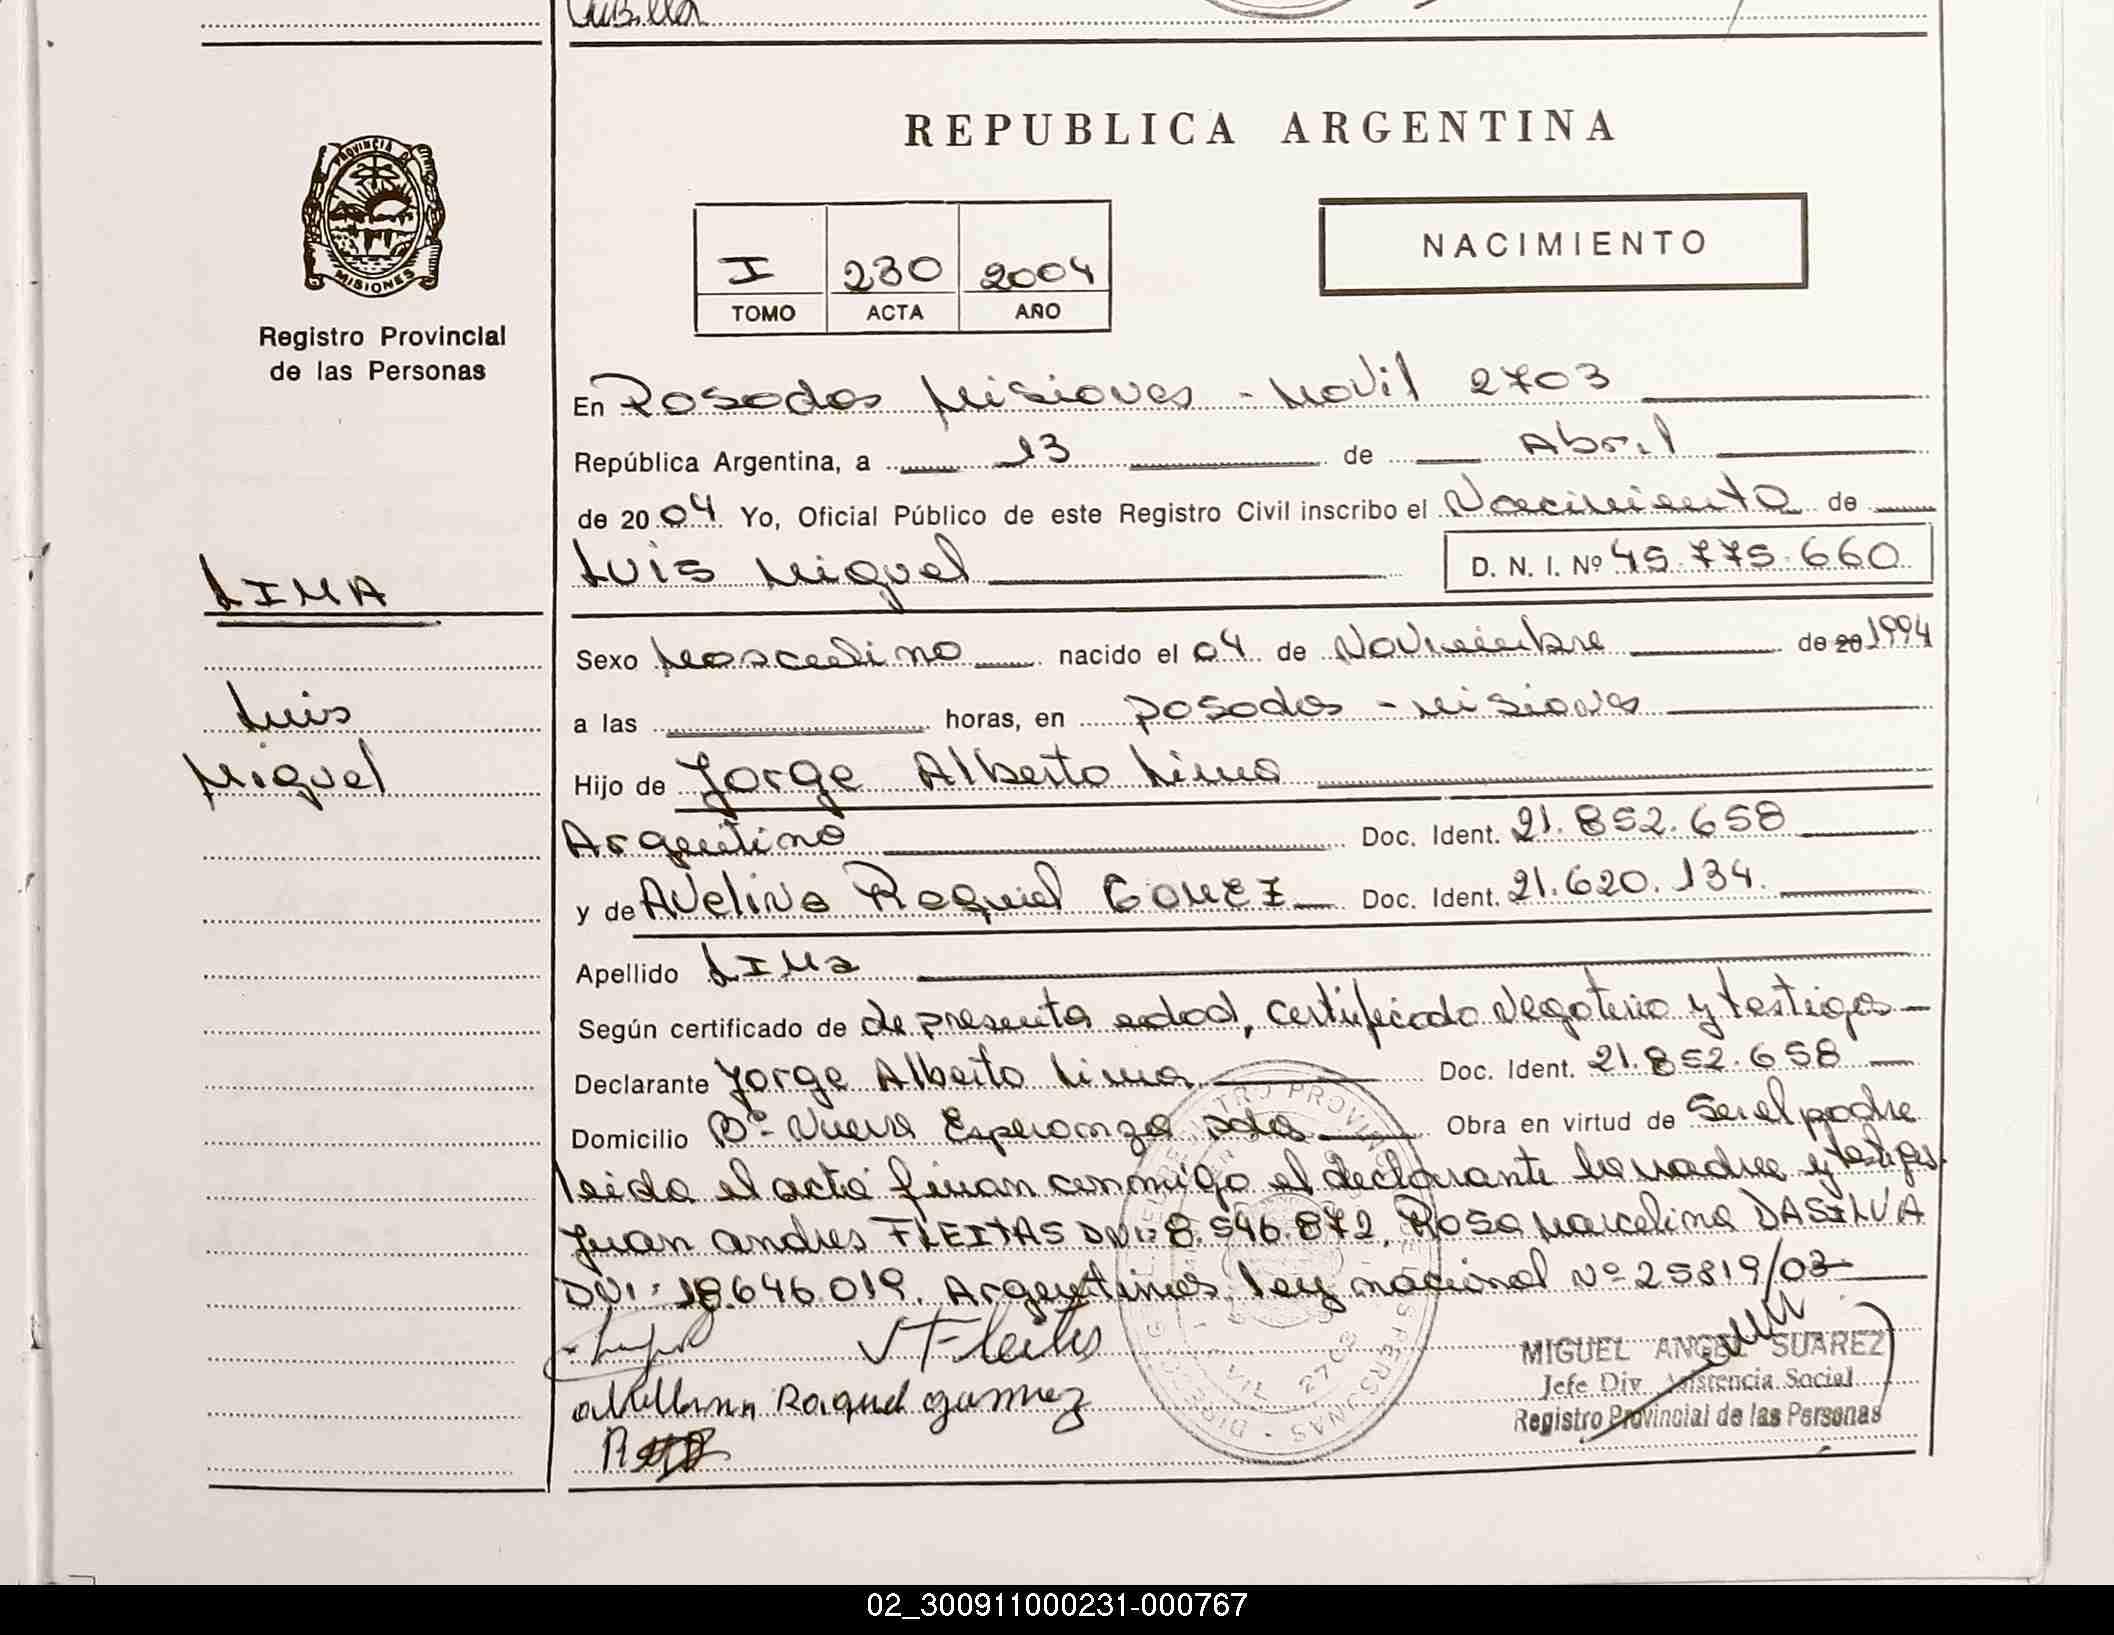 Cubilla
PROVINCIA D
MISIONES
Registro Provincial
de las Personas
LIMA
Luis
Miguel
REPUBLICA ARGENTINA
I 230 2004
TOMO ACTA AÑO
NACIMIENTO
En Posadas Misiones - Movil 2703
República Argentina, a 13 de Abril
de 2004 Yo, Oficial Público de este Registro Civil inscribo el Nacimiento de
Luis Miguel D. N. I. Nº 45.775.660
Sexo Masculino nacido el 04 de Noviembre de 20 1994
a las horas, en Posadas - Misiones
Hijo de Jorge Alberto Lima
Argentino Doc. Ident. 21.852.658
y de Avelina Raquel GOMEZ Doc. Ident. 21.620.134.
Apellido LIMa
Según certificado de de presenta edad, certificado Negativo y testigos
Declarante Jorge Alberto Lima Doc. Ident. 21.852.658
Domicilio Bº Nueva Esperanza Pdas Obra en virtud de Ser el padre
leida el acta firman conmigo el declarante la madre y testigos
Juan andres FLEITAS DNI: 8.546.872, Rosa Marcelina DASILVA
DNI: 18.646.019. Argentinos. ley nacional Nº 25819/03
J Fleitas
Raquel gomez
MIGUEL ANGEL SUAREZ
Jefe Div. Asistencia Social
Registro Provincial de las Personas
02_300911000231-000767